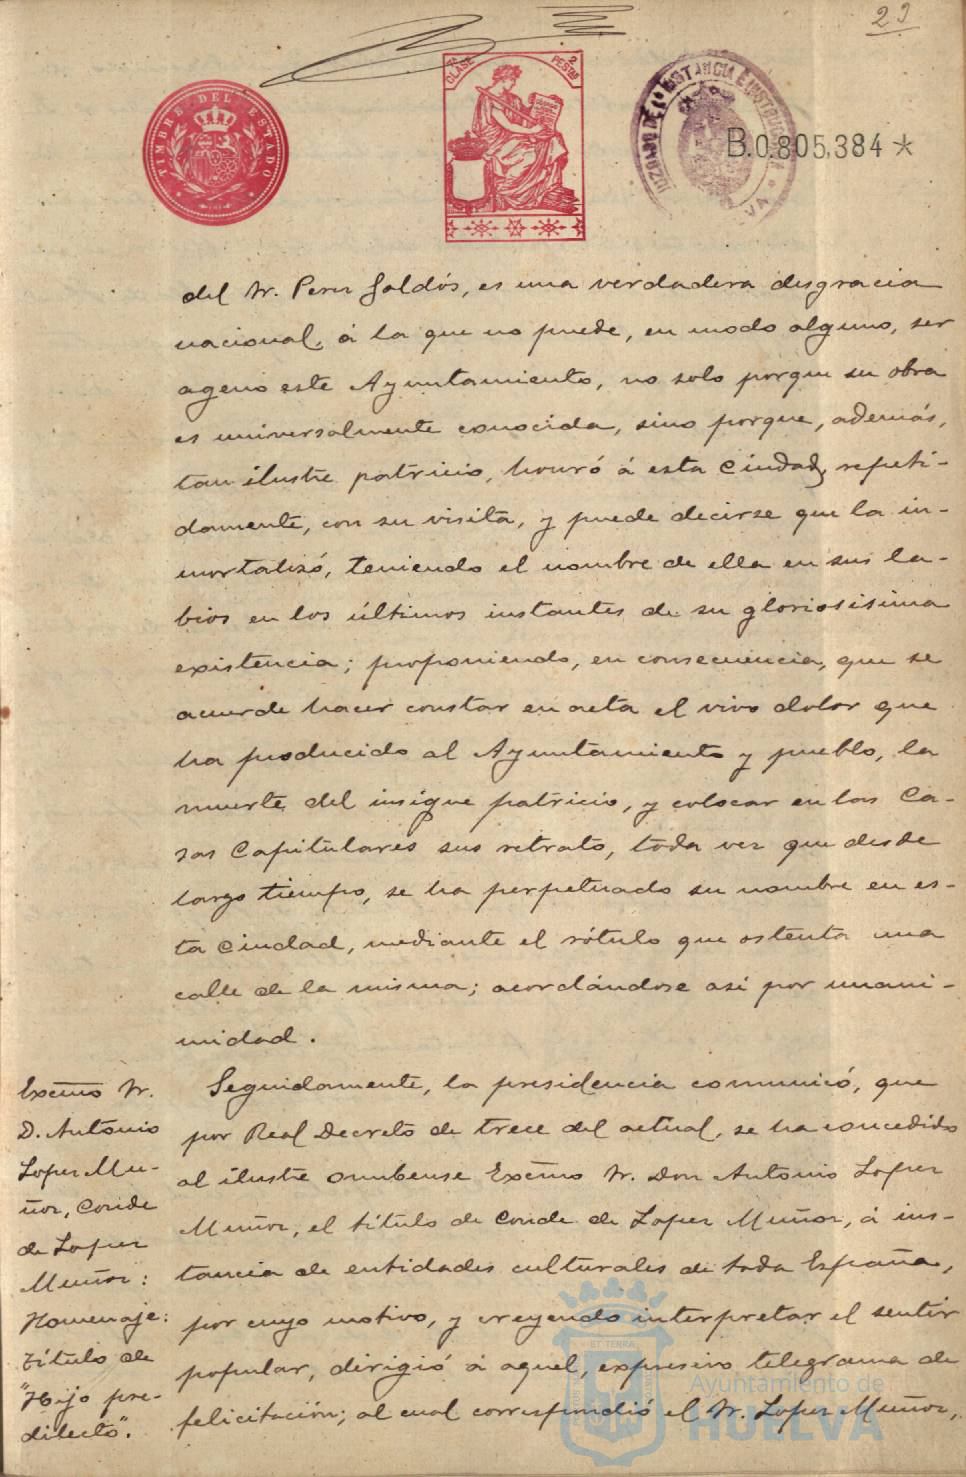 29
TIMBRE DEL ESTADO
7ª CLASE 2 PESETAS
JUZGADO DE 1ª INSTANCIA E INSTRUCCION
B.0.805,384 *
del Sr. Perez Galdós, es una verdadera desgracia
nacional, á la que no puede, en modo alguno, ser
ageno este Ayuntamiento, no solo porque su obra
es universalmente conocida, sino porque, además,
tan ilustre patricio, honró á esta Ciudad, repeti-
damente, con su visita, y puede decirse que la in-
mortalizó, teniendo el nombre de ella en sus la-
bios en los últimos instantes de su gloriosisima
existencia; proponiendo, en consecuencia, que se
acuerde hacer constar en acta el vivo dolor que
ha producido al Ayuntamiento y pueblo, la
muerte del insigne patricio, y colocar en las Ca-
sas Capitulares sus retrato, toda vez que desde
largo tiempo, se ha perpetuado su nombre en es-
ta Ciudad, mediante el rótulo que ostenta una
calle de la misma; acordándose asi por unani-
midad.
Excmo Sr.
D. Antonio
Lopez Mu-
ñoz, Conde
de Lopez
Muñoz:
Homenaje:
Título de
"Hijo pre-
dilecto".
Seguidamente, la presidencia comunicó, que
por Real Decreto de trece del actual, se ha concedido
al ilustre onubense Excmo Sr. Don Antonio Lopez
Muñoz, el título de Conde de Lopez Muñoz, á ins-
tancia de entidades culturales de toda España,
por cuyo motivo, y creyendo interpretar el sentir
popular, dirigió á aquel, expresivo telegrama de
felicitación; al cual correspondió el Sr. Lopez Muñoz,
Ayuntamiento de
HUELVA